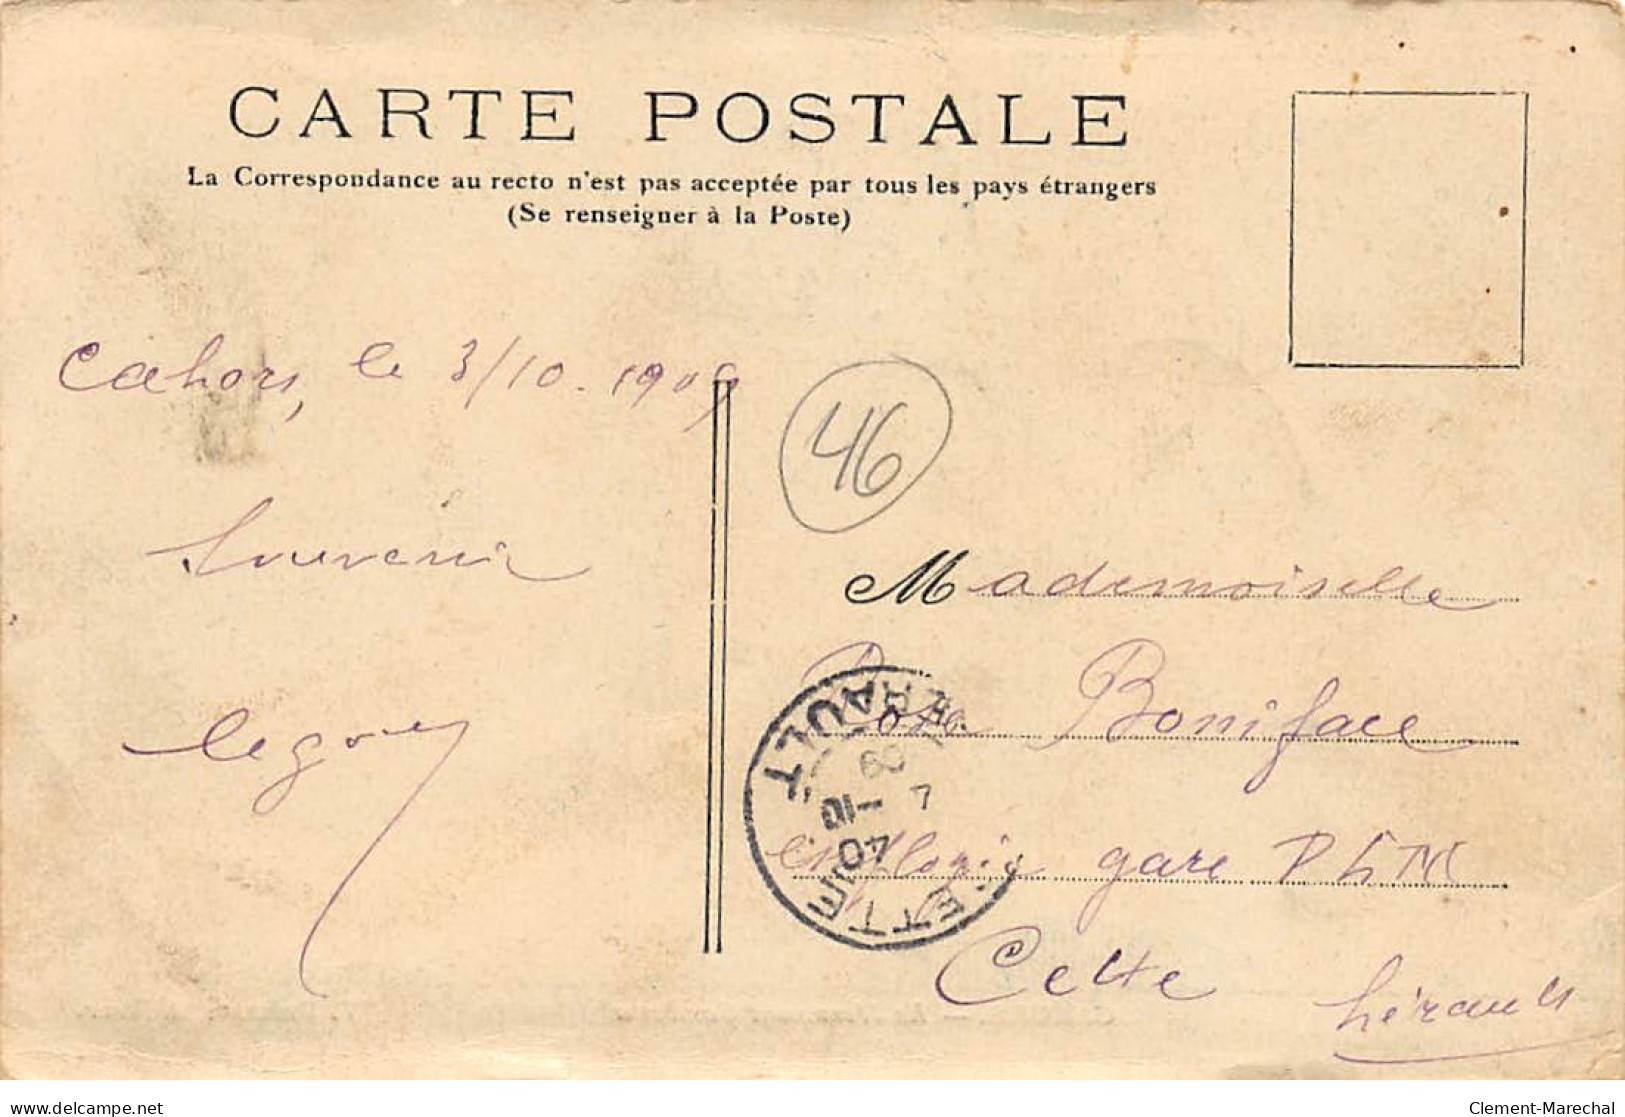 CARTE POSTALE
La Correspondance au recto n'est pas acceptée par tous les pays étrangers
(Se renseigner à la Poste)
Cahors, le 3/10. 1909
46
Souvenir
Mademoiselle
Rose Boniface
employée gare PLM
Cette
hérault
CETTE
HERAULT
delcampe.net
Clement-Marechal